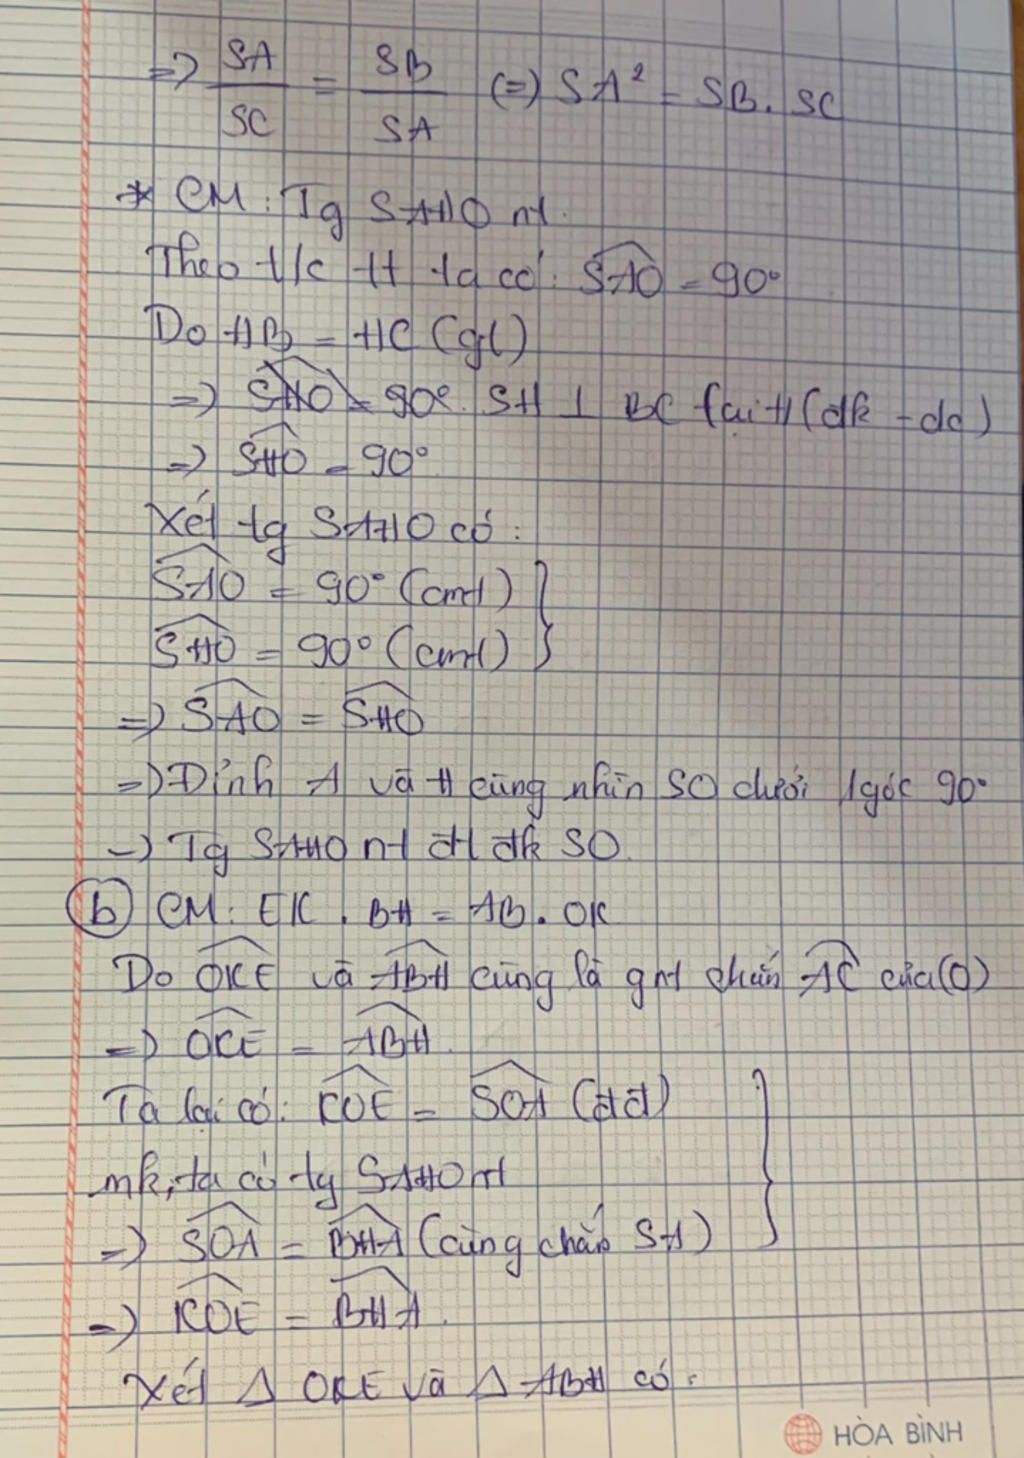 => SA/SC = SB/SA (=) SA² = SB. SC
* CM: Tg SAHO nt.
Theo t/c tt ta có: SAO = 90°
Do HB = HC (gt)
=> SHO = 90°. SH ⊥ BC tại H (đk - dc)
=> SHO = 90°
Xét tg SAHO có:
SAO = 90° (cmt)
SHO = 90° (cmt)
=> SAO = SHO
=> Đỉnh A và H cùng nhìn SO dưới 1 góc 90°
-) Tg SAHO nt đt đk SO.
b) CM: EK . BH = AB . OK
Do OKE và ABH cùng là gnt chắn AC của (O)
=> OKE = ABH.
Ta lại có: KOE = SOA (đđ)
mk, ta có tg SAHO nt
=> SOA = BHA (cùng chắn SA)
=> KOE = BHA.
Xét Δ OKE và Δ ABH có:
HÒA BÌNH